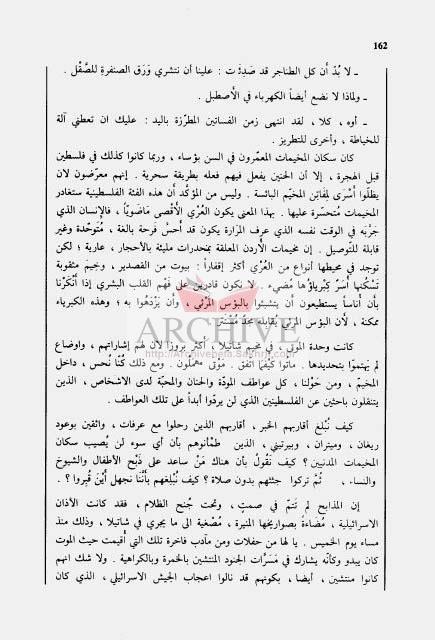 162
ـ لا بُدّ أن كل الطناجر قد صَدِئَت : علينا أن نشتري وَرَق الصنفرةِ للصَّقْل .
ـ ولماذا لا نضع أيضاً الكهرباء في الأصطبل .
ـ أوه ، كلا ، لقد انتهى زمن الفساتين المطرّزة باليد : عليك ان تعطي آلة
للخياطة ، وأخرى للتطريز .
كان سكان المخيمات المعمّرون في السن بؤساء ، وربما كانوا كذلك في فلسطين
قبل الهجرة ، إلا أن الحنين يفعل فيهم فعله بطريقة سحرية . إنهم معرّضون لان
يظلّوا أسْرَى لمفاتِن المخيّم البائسة . وليس من المؤكّد أن هذه الفئة الفلسطينية ستغادر
المخيمات مُتحسّرة عليها . بهذا المعنى يكون العُرْيُ الأقْصى مَاضَوِيّاً ، فالإنسان الذي
جَرَّبَه في الوقت نفسه الذي عرف المرَارة يكون قد أحسّ فرحة بالغة ، مُتَوحّدة وغير
قابلة للتّوصيل . إن مخيمات الأردن المعلقة بمنحدرات مليئة بالأحجار ، عارية ؛ لكن
توجد في محيطها أنواع من العُرْي أكثر إقفاراً : بيوت من القصدير ، وخِيَمٌ مثقوبة
تَسْكُنها أُسَرٌ كِبْرِياؤُها مُضيء . لا يكون قادرين على فَهْم القلب البشري إذا أنْكَرْنا
بأن أناساً يستطيعون أن يتشبثوا بالبؤس المرْئي ، وأن يَزْدَهُوا به ؛ وهذه الكبرياء
ممكنة ، لأن البؤس المرْئي يُقابله مجْدٌ مُسْتَتِر .
ARCHIVE
http://Archivebeta.Sakhrit.com
كانت وحدة الموتى ، في مخيم شاتيلا ، أكثر بروزاً لأن لهم إشاراتهم ، واوضاع
لم يَهتموّا بتحديدها . ماتوا كَيْفَما اتّفَق . مَوْتى مُهْملون . ومع ذلك كُنّا نُحس ، داخل
المخيّم ، ومن حَوْلنا ، كل عواطف المودّة والحنان والمحبّة لدى الاشخاص ، الذين
يتنقلون باحثين عن الفلسطينين الذي لن يردّوا أبداً على تلك العواطف .
كيف نُبْلغ أقاربهم الخبر ، أقاربهم الذين رحلوا مع عرفات ، واثقين بوعود
ريغان ، وميتران ، وبيرتيني ، الذين طمْأنوهم بأن أي سوء لن يُصيب سكان
المخيمات المدنيين ؟ كيف نَقُولُ بأن هناك مَنْ ساعد على ذَبْح الأطفال والشيوخ
والنساء ، ثُمَّ تركوا جثثهم بدون صلاة ؟ كيف نُبلغهم بأنّنا نجهل أيْنَ قُبروا ؟ .
إن المذابح لم تَتمّ في صمتٍ ، وتحت جُنح الظلام ، فقد كانت الآذان
الاسرائيلية ، مُضَاءةً بصواريخها المنيرة ، مُصْغية الى ما يجري في شاتيلا ، وذلك منذ
مساء يوم الخميس . يا لها من حفلات ومن مآدب فاخرة تلك التي أقيمت حيث الموت
كان يبدو وكأنه يشارك في مَسَرّات الجنود المنتشين بالخمرة وبالكراهية . ولا شك انهم
كانوا منتشين ، أيضا ، بكونهم قد نالوا اعجاب الجيش الاسرائيلي ، الذي كان